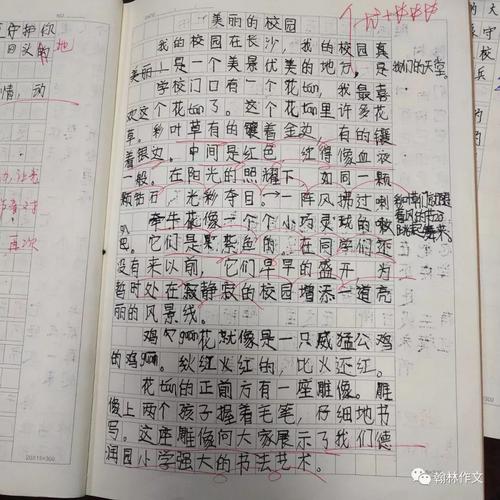 美丽的校园
我的校园在长沙,我的校园真
美丽!是一个美景优美的地方,是我们的天堂。
学校门口有一个花tán,我最喜
欢这个花tán了。这个花tán里许多花
草。彩叶草有的镶着金边,有的镶
着银边。中间是红色,红得像血液
一般。在阳光的照耀下,如同一颗
颗钻石,光彩夺目。一阵风拂过
牵牛花像一个个小巧玲珑的喇
叭。它们是紫色的,在同学们还
没有来以前,它们早早的盛开,为
暂时处在寂静的校园增添一道亮
丽的风景线。
鸡guān花就像是一只威猛公鸡
的鸡guān。火红火红的,比火还红。
花tán的正前方有一座雕像。雕
像上两个孩子握着毛笔,仔细地书
写。这座雕像向大家展示了我们德
润园小学强大的书法艺术。
守护你
情,动
再次
20×15=300
翰林作文